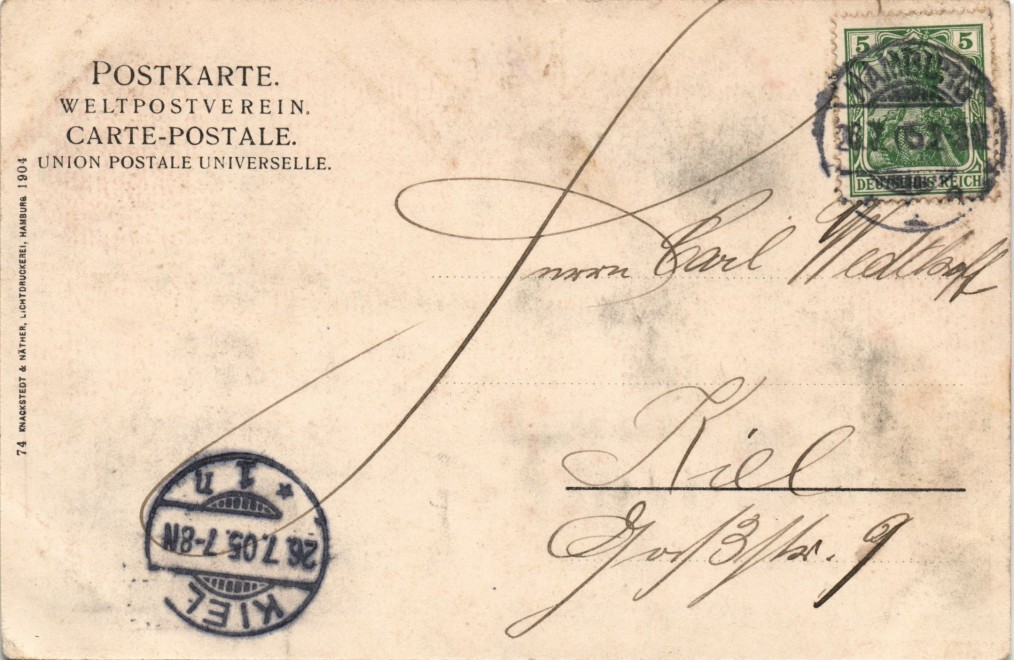 POSTKARTE.
WELTPOSTVEREIN.
CARTE-POSTALE.
UNION POSTALE UNIVERSELLE.
74 KNACKSTEDT & NÄTHER, LICHTDRUCKEREI, HAMBURG 1904
5 5
DEUTSCHES REICH
HAMBURG
26.7.05.
Herrn Carl
Kiel
9
KIEL
26.7.05.7-8N
* 1 n